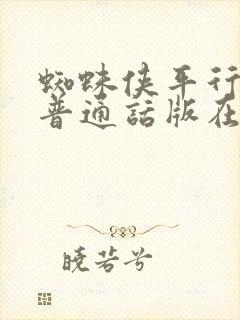 蜘蛛侠平行
普通話版在
晓若兮